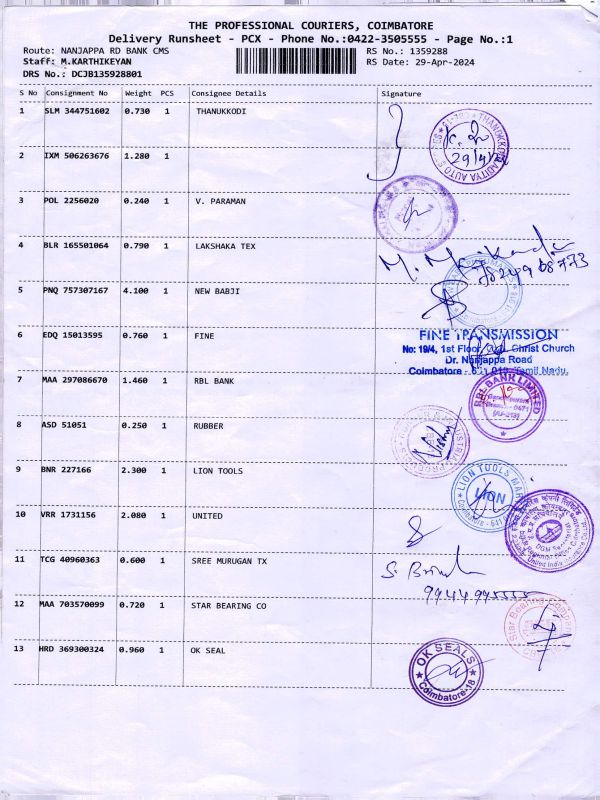 THE PROFESSIONAL COURIERS, COIMBATORE
Delivery Runsheet - PCX - Phone No.:0422-3505555 - Page No.:1
Route: NANJAPPA RD BANK CMS RS No.: 1359288
Staff: M.KARTHIKEYAN RS Date: 29-Apr-2024
DRS No.: DCJB135928801
S No Consignment No Weight PCS Consignee Details Signature
1 SLM 344751602 0.730 1 THANUKKODI
29/4/24
2 IXM 506263676 1.280 1
3 POL 2256020 0.240 1 V. PARAMAN
4 BLR 165501064 0.790 1 LAKSHAKA TEX
5 PNQ 757307167 4.100 1 NEW BABJI
6 EDQ 15013595 0.760 1 FINE
FINE TRANSMISSION
No: 19/4, 1st Floor, Christ Church
Dr. Nanjappa Road
Coimbatore - 641 018, Tamil Nadu.
7 MAA 297086670 1.460 1 RBL BANK
RBL BANK LIMITED
8 ASD 51051 0.250 1 RUBBER
9 BNR 227166 2.300 1 LION TOOLS
LION TOOLS MART
LION
Coimbatore - 641
10 VRR 1731156 2.080 1 UNITED
11 TCG 40960363 0.600 1 SREE MURUGAN TX
12 MAA 703570099 0.720 1 STAR BEARING CO
Star Bearing Company
13 HRD 369300324 0.960 1 OK SEAL
OK SEALS
Coimbatore-18